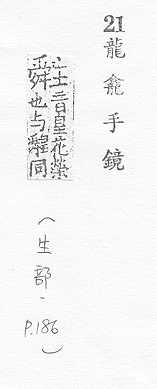 21 龍龕手鏡
㞷音皇花榮
舜也与䑟同
(生部,
P.186)